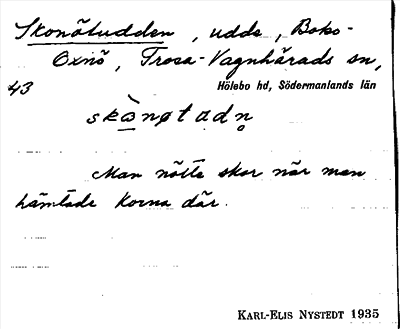 Skonötudden, udde, Boko-
Oxnö, Trosa-Vagnhärads sn,
43 Hölebo hd, Södermanlands län
skònøtadn̥
Man nötte skor när man
hämtade korna där.
KARL-ELIS NYSTEDT 1935